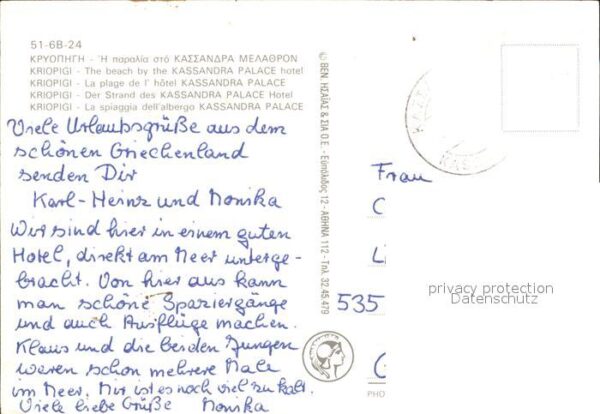 51-6B-24
ΚΡΥΟΠΗΓΗ - Ἡ παραλία στό ΚΑΣΣΑΝΔΡΑ ΜΕΛΑΘΡΟΝ
KRIOPIGI - The beach by the KASSANDRA PALACE hotel
KRIOPIGI - La plage de l' hôtel KASSANDRA PALACE
KRIOPIGI - Der Strand des KASSANDRA PALACE Hotel
KRIOPIGI - La spiaggia dell'albergo KASSANDRA PALACE
Viele Urlaubsgrüße aus dem
schönen Griechenland
senden Dir
Karl-Heinz und Monika
Wir sind hier in einem guten
Hotel, direkt am Meer unterge-
bracht. Von hier aus kann
man schöne Spaziergänge
und auch Ausflüge machen.
Klaus und die beiden Jungen
waren schon mehrere Male
im Meer. Mir ist es noch viel zu kalt.
Viele liebe Grüße Monika
© ΒΕΝ. ΗΣΑΪΑΣ & ΣΙΑ Ο.Ε. - Εὐπόλιδος 12 - ΑΘΗΝΑ 112 - Τηλ. 32.45.479
Frau
C
L
535
G
PHO
privacy protection
Datenschutz